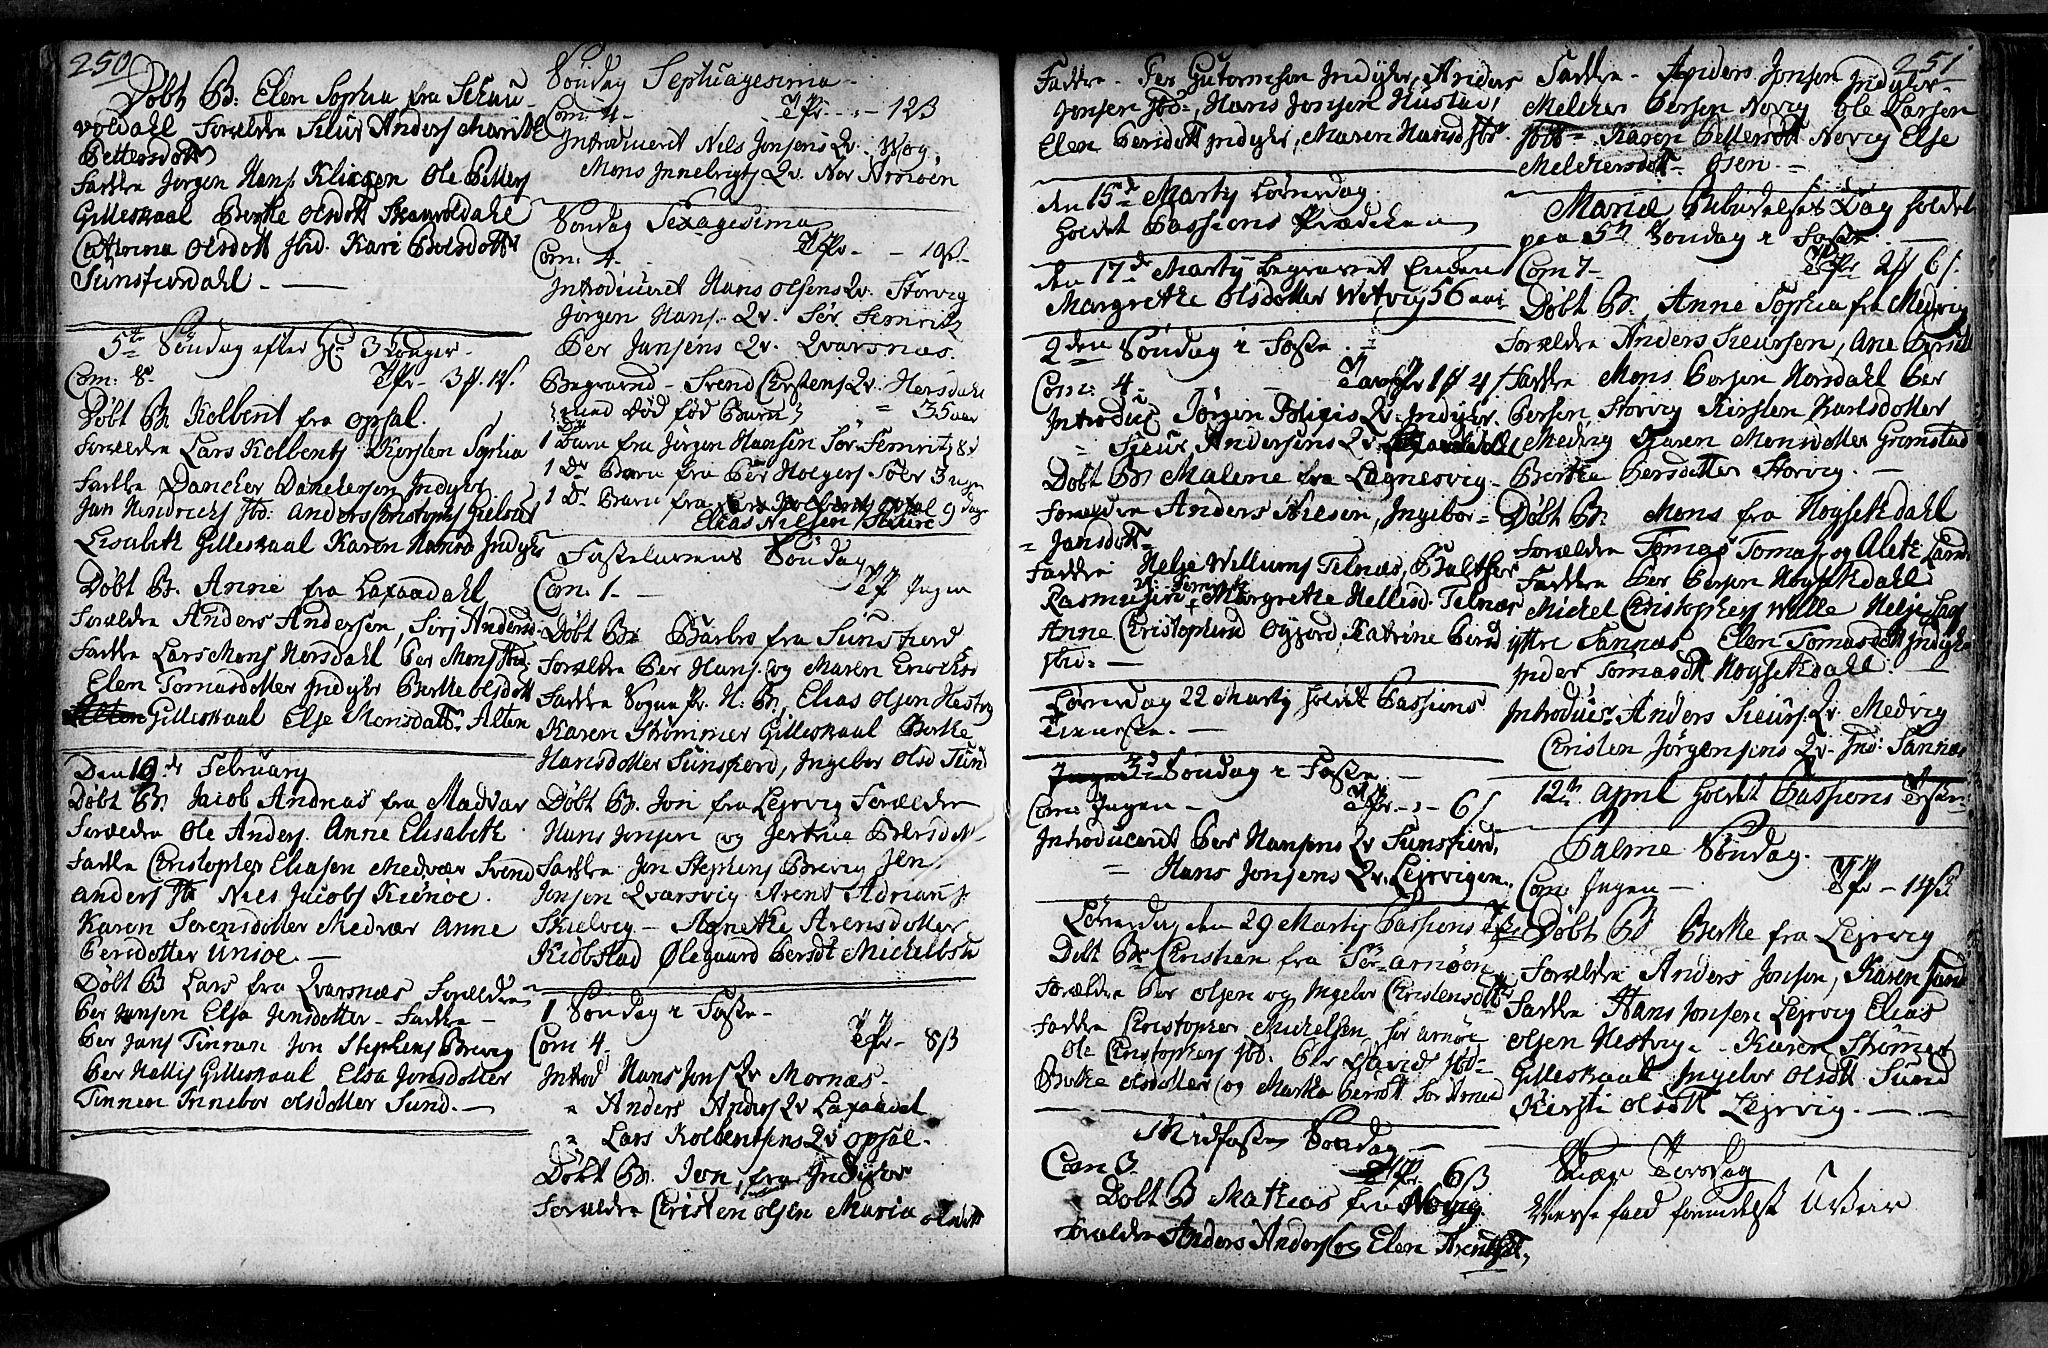 250
Døbt B: Elen Sophia fra Skau
voldahl Forældre Siur Anders Marithe
Pettersdott
Fadde Jørgen Hans. Klichen Ole Petters
Gilleskaal Berthe Olsdott Skauvoldahl
Cathrina Olsdott ibid. Kari Persdotter
Sunsfiordahl
5te Søndag efter H. 3 Konger
Com: 8. Tfr 3 ß.
Døbt B. Kolbent fra Opsal.
Forældre Lars Kolbents Kirsten Sophia
Fadde Dancher Danchersen Indyhr
Jan Hendrichs ibd: Anders Christophers
Lisabeth Gilleskaal Karen Hansd Indyhr
Døbt B. Anne fra Laxaadahl
Forældre Anders Andersen, Siri Andersd
Fadde Lars Mons Horsdahl Per Mons ibid
Elen Tomasdotter Indyhr Berthe Olsdott
Gilleskaal Else Monsdatter Alten
Den 10de February
Døbt B. Jacob Andreas fra Madvær
Forældre Ole Anders. Anne Elisabeth
Fadde Christopher Eliasen Medvær Svend
Anders ib Niels Jacobs Kiønøe.
Karen Sørensdotter Medvær Anne
Persdotter Unioe.
Døbt B Lars fra Qvarsnæs Forældre
Per Jansen Elsa Jensdotter Fadde
Per Jans Tinnan Jon Stephens Brevig
Per Hellis Gilleskaal Elsa Jonsdotter
Tinnen Innebor Olsdotter Sund.
Søndag Septuagesima
Com: 4. Tfr 12ß
Introduceret Niels Jonsens Qv. Wog,
Mons Innebrigts Qv. Nor Arnøen
Søndag Sexagesima
Com: 4. Tfr 19ß.
Introduceret Hans Olsens Qv. Storvig
Jørgen Hans Qv. Sør Femris
Per Jansens Qv. Qvarsnæs.
Begravend Svend Christens Qv. Horsdahl
med død fød Barn 35 aar
1 Barn fra Jørgen Hansen Sør Femris 8
1 Dr Barn fra Per Holgers Sører 3 uger
1 Dr Barn fra 9 dage
Elias Nilssen
Fastelavens Søndag
Com. 1. Tfr Ingen
Døbt B. Barbro fra Sunsfiord
Forældre Per Hans. og Maren Erichsd
Fadde Sogne Pr. H. B. Elias Olsen Nestvig
Karen Strømmer Gilleskaal Berthe
Hansdotter Sunsfiord, Ingebor Olsd Sund
Døbt B. Jon fra Lejrvig Forældre
Hans Jonsen og Jertrue Persdott
Fadde Jon Stephens Brevig Jens
Jonsen Qvarsvig Arent Adrians
Skielvig Agnethe Arensdotter
Kiøbstad Ølegaard Persdt Michelbst
1 Søndag i Faste
Com 4. Tfr 8ß
Introd Hans Jons Qv Mornæs
" Anders Anders Qv Laxaadal
" Lars Kolbentsens Qv Opsal.
Døbt B. Jon, fra Indyhr
Forældre Christen Olsen Maria Olsdott
251
Fadde Per Gutormsen Indyhr, Anders
Jonsen ibd., Hans Jonsen Hustad,
Elen Persdott Indyhr, Maren Hansd ibd.
den 15de Marty Lørverdag
holdet Passions Prædichen
den 17de Marty begravet Enchen
Margrethe Olsdotter Wotvig 56 aar
2den Søndag i Faste.
Com: 4. Tavfr 1ß 4
Introduc Jørgen Qv. Indyhr.
" Sieur Andersens Qv
Døbt B. Malene fra Lagnesvig
Forældre Anders Niesen, Ingebor
Jansdott
Fadde Helje Willums Telnæs, Balther
Rasmusen Margrethe Hellisd. Telnæs
Anne Christophersd Katrine Persd
ibid.
Lørverdag 22 Marty holdt Passions
Tieneste.
3de Søndag i Faste.
Com: Ingen Tfr 6ß
Introduceret Per Hansens Qv Sunsfiord,
" Hans Jonsens Qv. Lejrvigen.
Lørverdag den 29 Marty Passions
Døbt B. Christian fra Sør Arnøen
Forældre Per Olsen og Ingebor Christensdott
Fadde Christopher Michelsen Sør Arnøe
Ole Christophers ibd. Per Davids ibd
Berthe Olsdotter og Martha Persdt Sør Arnøe
Midfaste Søndag
Com 3. Tfr 6ß
Døbt B Mathias fra Novig.
Forældre Anders Anders og Elen Arentsd.
Fadde Anders Jonsen Indyhr
Melcher Persen Novig Ole Larsen
ibid Karen Pettersdott Novig Else
Melchersdott Osen.
Mariæ Bebudelses Dag holdet
paa 5te Søndag i Faste
Com 7 Tfr 2 6
Døbt B. Anne Sophia fra Medvig
Forældre Anders Sieursen, Ane Persd
Fadde Mons Persen Horsdahl Per
Persen Storvig Kirsten Karlsdotter
Medvig Karen Monsdotter Grønstad
Berthe Persdotter Storvig.
Døbt B. Mons fra Høgsethdahl
Forældre Tomas Tomas og Aleth Larsd
Fadde Per Persen Høgsethdahl
Michel Christophers Walle Helje Lars
yttre Sannæs Elen Tomasdott Indyhr
Inder Tomasdt Høgsethdahl.
Introduc. Anders Sieurs. Qv. Medvig
Christen Jørgensens Qv. Ind: Sannæs
12te April holdet Passions
Palme Søndag.
Com: Ingen Tfr 14ß
Døbt B Berthe fra Lejrvig
Forældre Anders Jonsen, Karen
Fadde Hans Jonsen Lejrvig Elias
Olsen Nestvig, Karen Strømer
Gilleskaal Ingebor Olsdtt Sund
Kirsti Olsdtt Lejrvig.
Skiær Torsdag